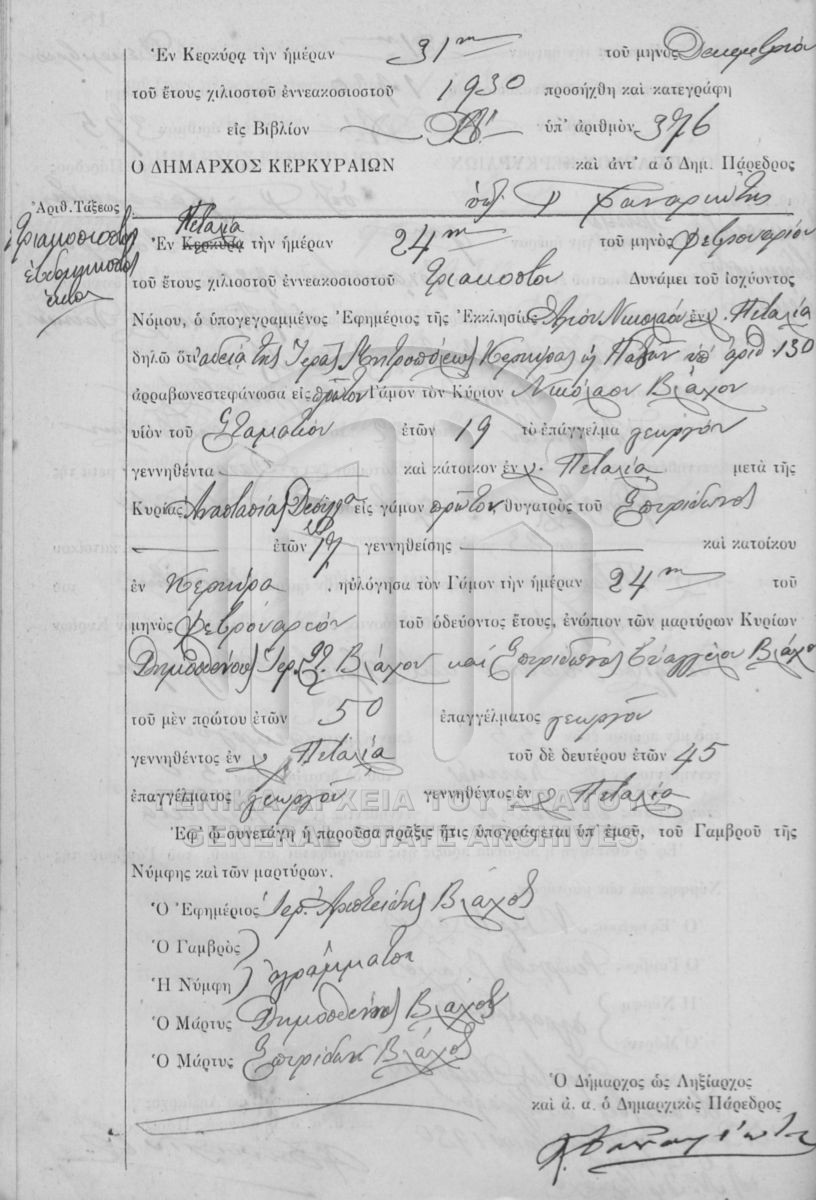 Ἐν Κερκύρᾳ τὴν ἡμέραν 31ην τοῦ μηνὸς Δεκεμβρίου
τοῦ ἔτους χιλιοστοῦ ἐννεακοσιοστοῦ 1930 προσήχθη καὶ κατεγράφη
εἰς Βιβλίον Β' ὑπ' ἀριθμὸν 376
Ο ΔΗΜΑΡΧΟΣ ΚΕΡΚΥΡΑΙΩΝ καὶ ἀντ' α ὁ Δημ. Πάρεδρος
Ἀριθ. Τάξεως
Τριακοσιοστὸς
ἑβδομηκοστὸς
ἕκτος
Πεταλίᾳ
Ἐν Κερκύρᾳ τὴν ἡμέραν 24ην τοῦ μηνὸς Φεβρουαρίου
τοῦ ἔτους χιλιοστοῦ ἐννεακοσιοστοῦ τριακοστοῦ Δυνάμει τοῦ ἰσχύοντος
Νόμου, ὁ ὑπογεγραμμένος Ἐφημέριος τῆς Ἐκκλησίας Ἁγίου Νικολάου ἐν χ. Πεταλίᾳ
δηλῶ ὅτι ἀδείᾳ τῆς Ἱερᾶς Μητροπόλεως Κερκύρας ἢ Παξῶν ὑπ' ἀριθ 130
ἀρραβωνεστεφάνωσα εἰς πρῶτον Γάμον τὸν Κύριον Νικόλαον Βλάχον
υἱὸν τοῦ Σταματίου ἐτῶν 19 τὸ ἐπάγγελμα γεωργὸν
γεννηθέντα καὶ κάτοικον ἐν χ. Πεταλίᾳ μετὰ τῆς
Κυρίας Ἀναστασίας εἰς γάμον πρῶτον θυγατρὸς τοῦ Σπυρίδωνος
ἐτῶν 17 γεννηθείσης καὶ κατοίκου
ἐν Κερκύρᾳ, ηὐλόγησα τὸν Γάμον τὴν ἡμέραν 24ην τοῦ
μηνὸς Φεβρουαρίου τοῦ ὁδεύοντος ἔτους, ἐνώπιον τῶν μαρτύρων Κυρίων
Δημοσθένους Βλάχου καὶ Σπυρίδωνος Εὐαγγέλου Βλάχο
τοῦ μὲν πρώτου ἐτῶν 50 ἐπαγγέλματος γεωργοῦ
γεννηθέντος ἐν χ. Πεταλίᾳ τοῦ δὲ δευτέρου ἐτῶν 45
ἐπαγγέλματος γεωργοῦ γεννηθέντος ἐν χ. Πεταλίᾳ
ΓΕΝΙΚΑ ΑΡΧΕΙΑ ΤΟΥ ΚΡΑΤΟΥΣ
Ἐφ' ᾧ συνετάγη ἡ παροῦσα πρᾶξις ἥτις ὑπογράφεται ὑπ' ἐμοῦ, τοῦ Γαμβροῦ τῆς
GENERAL STATE ARCHIVES
Νύμφης καὶ τῶν μαρτύρων.
Ὁ Ἐφημέριος Ἱερ. Ἀριστείδης Βλάχος
Ὁ Γαμβρὸς
Ἡ Νύμφη ἀγράμματοι
Ὁ Μάρτυς Δημοσθένης Βλάχος
Ὁ Μάρτυς Σπυρίδων Βλάχος
Ὁ Δήμαρχος ὡς Ληξίαρχος
καὶ ἀ. ἀ. ὁ Δημαρχικὸς Πάρεδρος